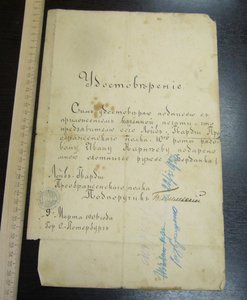 Удостовѣреніе
Симъ удостовѣряю подписью съ
приложеніемъ казенной печати, что
предъявителю сего Лейбъ-Гвардіи Пре
ображенскаго Полка, 10ой роты рядо
вому Ивану подарено
мною охотничье ружье "Берданка"
Лейбъ-Гвардіи
Преображенскаго полка
Подпоручикъ
9 Марта 1906 года
Гор. С-Петербургъ